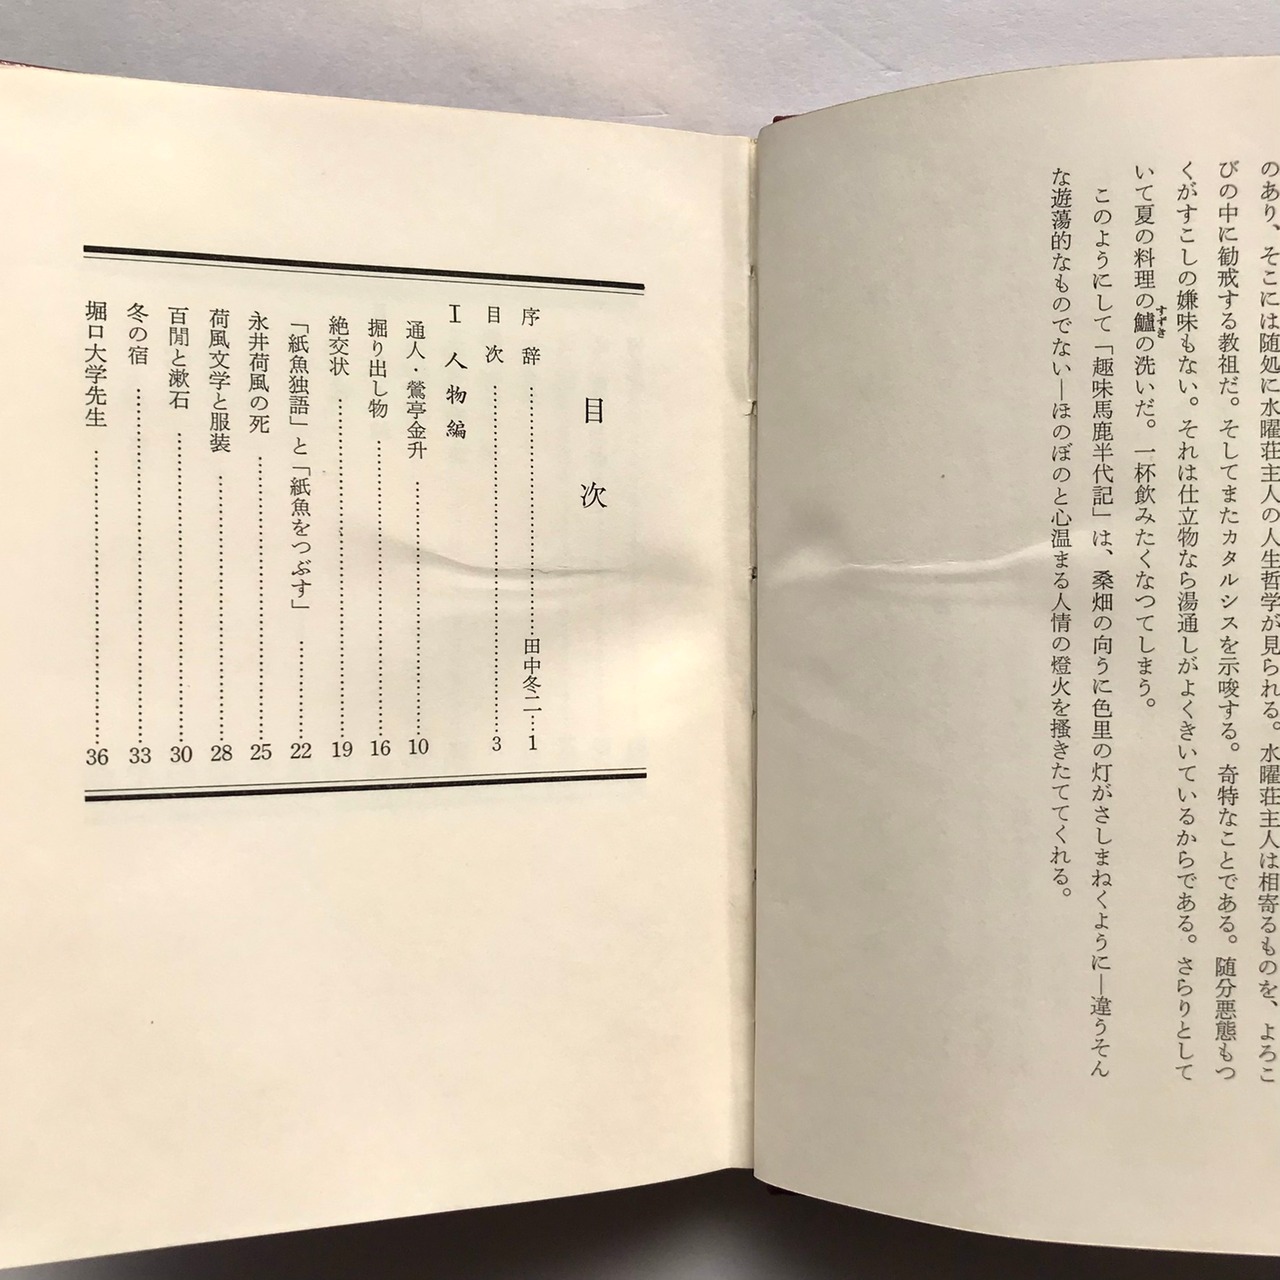 のあり、そこには随処に水曜荘主人の人生哲学が見られる。水曜荘主人は相寄るものを、よろこ
びの中に勧戒する教祖だ。そしてまたカタルシスを示唆する。奇特なことである。随分悪態もつ
くがすこしの嫌味もない。それは仕立物なら湯通しがよくきいているからである。さらりとして
いて夏の料理の鱸すずきの洗いだ。一杯飲みたくなつてしまう。
このようにして「趣味馬鹿半代記」は、桑畑の向うに色里の灯がさしまねくように―違うそん
な遊蕩的なものでない―ほのぼのと心温まる人情の燈火を掻きたててくれる。
目次
序辞……田中冬二…1
目次……3
Ⅰ 人物編
通人・鶯亭金升……10
掘り出し物……16
絶交状……19
「紙魚独語」と「紙魚をつぶす」……22
永井荷風の死……25
荷風文学と服装……28
百閒と漱石……30
冬の宿……33
堀口大学先生……36